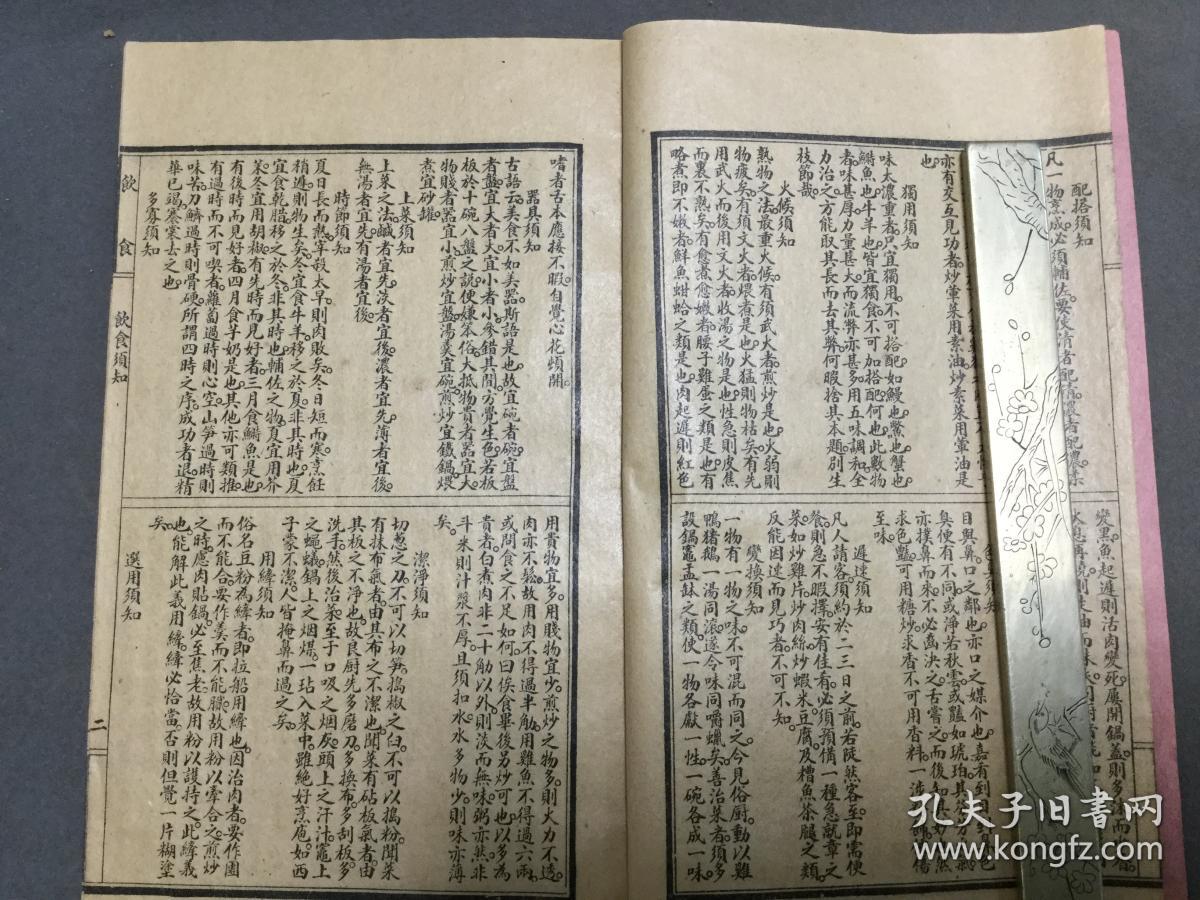 配搭須知
凡一物烹成必須輔佐要使清者配清濃者配濃柔
亦有交互見功者炒葷菜用素油炒素菜用葷油是
也
獨用須知
味太濃重者只宜獨用不可搭配如鰻也鱉也蟹也
鰣魚也牛羊也皆宜獨食不可加搭配何也此數物
者味甚厚力量甚大而流弊亦甚多用五味調和全
力治之方能取其長而去其弊何暇捨其本題別生
枝節哉
火候須知
熟物之法最重火候有須武火者煎炒是也火弱則
物疲矣有須文火者煨煮是也火猛則物枯矣有先
用武火而後用文火者收湯之物是也性急則皮焦
而裏不熟矣有愈煮愈嫩者腰子雞蛋之類是也有
略煮即不嫩者鮮魚蚶蛤之類是也肉起遲則紅色
變黑魚起遲則活肉變死屢開鍋蓋則多沫而少
火息再燒則走油而味
須知
目與鼻口之鄰也亦口之媒介也嘉肴到目到鼻色
臭便有不同或淨若秋雲或豔如琥珀其芬芳之氣
亦撲鼻而來不必齒決之舌嘗之而後知其妙也然
求色豔可用糖炒求香不可用香料一涉粉飾便傷
至味
遲速須知
凡人請客須約於二三日之前若陡然客至即需便
餐則急不暇擇安有佳肴必須預備一種急就章之
菜如炒雞片炒肉絲炒蝦米豆腐及糟魚茶腿之類
反能因速而見巧者不可不知
變換須知
一物有一物之味不可混而同之今見俗厨動以雞
鴨猪鵝一湯同滾遂令味同嚼蠟矣善治菜者須多
設鍋竈盂缽之類使一物各獻一性一碗各成一味
嗜者舌本應接不暇自覺心花頓開
器具須知
古語云美食不如美器斯語是也故宜碗者碗宜盤
者盤宜大者大宜小者小參錯其間方覺生色若板
板於十碗八盤之說便嫌笨俗大抵物貴者器宜大
物賤者器宜小煎炒宜盤湯羹宜碗煎炒宜鐵鍋煨
煮宜砂罐
上菜須知
上菜之法鹹者宜先淡者宜後濃者宜先薄者宜後
無湯者宜先有湯者宜後
時節須知
夏日長而熱宰殺太早則肉敗矣冬日短而寒烹飪
稍遲則物生矣冬宜食牛羊移之於夏非其時也夏
宜食乾腊移之於冬非其時也輔佐之物夏宜用芥
菜冬宜用胡椒有先時而見好者三月食鰣魚是也
有後時而見好者四月食芋奶是也其他亦可類推
有過時而不可喫者蘿蔔過時則心空山笋過時則
味苦刀鱭過時則骨硬所謂四時之序成功者退精
華已竭褰裳去之也
多寡須知
用貴物宜多用賤物宜少煎炒之物多則火力不透
肉亦不鬆故用肉不得過半觔用雞魚不得過六兩
或問食之不足如何曰俟食畢後另炒可也以多為
貴者白煮肉非二十觔以外則淡而無味粥亦然非
斗米則汁漿不厚且須扣水水多物少則味亦薄
矣
潔淨須知
切葱之刀不可以切笋搗椒之臼不可以搗粉聞菜
有抹布氣者由其布之不潔也聞菜有砧板氣者由
其板之不淨也故良厨先多磨刀多換布多刮板多
洗手然後治菜至于口吸之烟灰頭上之汗汁竈上
之蠅蟻鍋上之烟煤一玷入菜中雖絶好烹庖如西
子蒙不潔人皆掩鼻而過之矣
用縴須知
俗名豆粉為縴者即拉船用縴也因治肉者要作團
而不能合要作羹而不能膩故用粉以牽合之煎炒
之時慮肉貼鍋必至焦老故用粉以護持之此縴義
也能解此義用縴縴必恰當否則但覺一片糊塗
矣
選用須知
飲食
飲食須知
二
孔夫子旧書网
www.kongfz.com